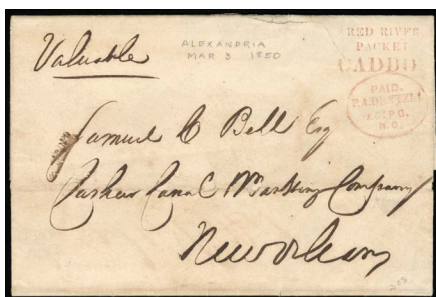 Valuable
ALEXANDRIA
MAR 3 1850
RED RIVER
PACKET
CADDO
PAID.
N.O.
Samuel C Bell Esq
Cashier Canal Banking Company
New Orleans